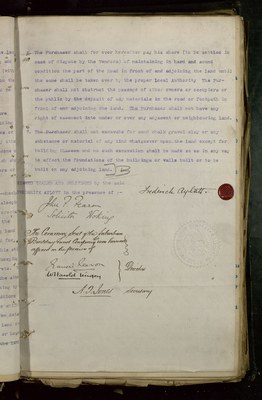 The Purchaser shall for ever hereafter pay his share (to be settled in
case of dispute by the Vendors) of maintaining in good and sound
condition the part of the road in front of and adjoining the land until
the same shall be taken over by the proper Local Authority The Pur-
chaser shall not obstruct the passage of other owners or occupiers or
the public by the deposit of any materials in the road or footpath in
front of and adjoining the land. The Purchaser shall not have any
right of easement over under or over any adjacent or neighbouring land.
The Purchaser shall not excavate for sand shall gravel clay or any
substance or material of any kind whatsoever upon the land except for
building and no such excavation shall be made so as in any way
to affect the foundations of the buildings or walls built or to be
built on any adjoining land.
SIGNED SEALED AND DELIVERED by the said
FREDERICK AYLETT in the presence of :-
Frederick Aylett
John F. Fearon
Solicitor Woking
The Common Seal of the
Building Limited was hereunto
affixed in the presence of
Directors
Secretary